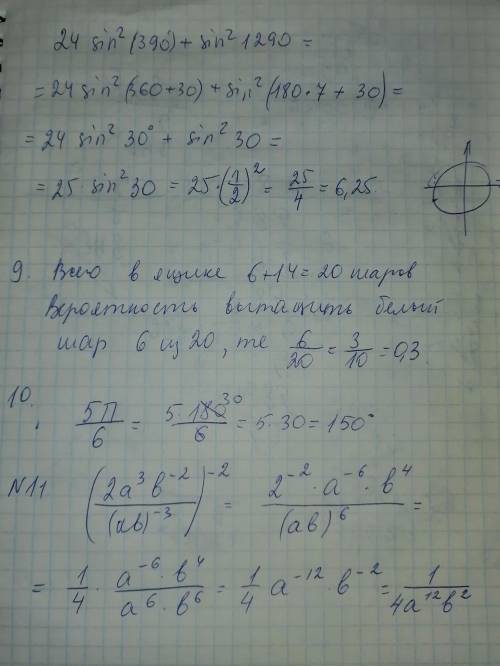 24 sin²(390) + sin² 1290 =
= 24 sin²(360+30) + sin²(180·7 + 30) =
= 24 sin² 30° + sin² 30 =
= 25 · sin² 30 = 25·(1/2)² = 25/4 = 6,25.
9. Всего в ящике 6+14=20 шаров
Вероятность вытащить белый
шар 6 из 20, те 6/20 = 3/10 = 0,3
10. 5П/6 = 5·180/6 30 = 5·30 = 150°
N11 (2a³b⁻²/(ab)⁻³)⁻² = 2⁻²·a⁻⁶·b⁴/(ab)⁶ =
= 1/4 · a⁻⁶·b⁴/a⁶·b⁶ = 1/4 a⁻¹²·b⁻² = 1/4a¹²b²